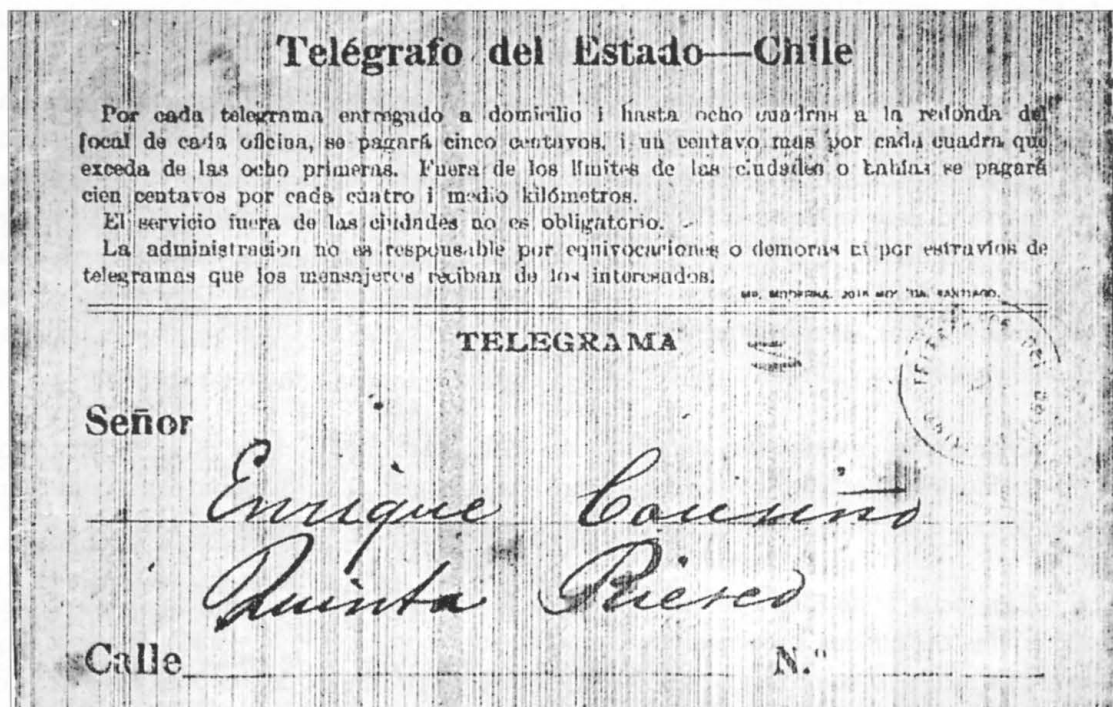 Telégrafo del Estado—Chile
Por cada telegrama entregado a domicilio i hasta ocho cuadras a la redonda del
local de cada oficina, se pagará cinco centavos, i un centavo mas por cada cuadra que
exceda de las ocho primeras. Fuera de los límites de las ciudades o bahías se pagará
cien centavos por cada cuatro i medio kilómetros.
El servicio fuera de las ciudades no es obligatorio.
La administracion no es responsable por equivocaciones o demoras ni por estravíos de
telegramas que los mensajeros reciban de los interesados.
SANTIAGO.
TELEGRAMA
Señor
Enrique Cousiño
Quinta
Calle N.º